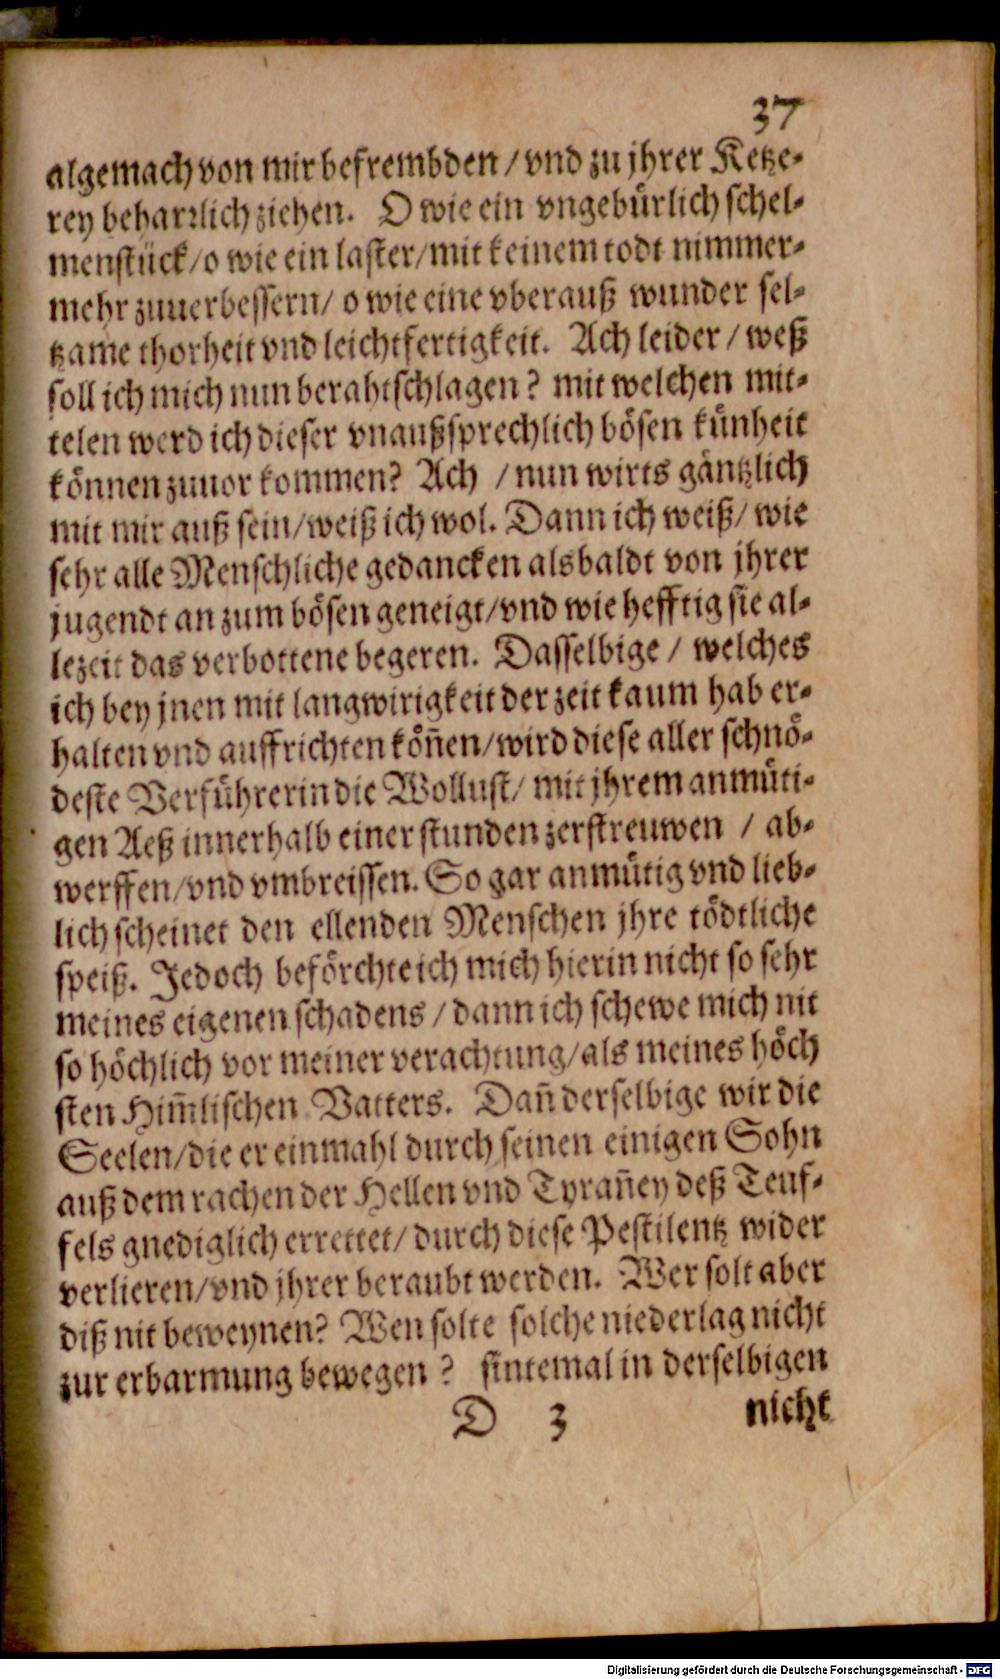 37
algemach von mir befrembden / vnd zu jhrer Ketze-
rey beharrlich ziehen. O wie ein vngebürlich schel-
menstück / o wie ein laster / mit keinem todt nimmer-
mehr zuuerbessern / o wie eine vberauß wunder sel-
tzame thorheit vnd leichtfertigkeit. Ach leider / weß
soll ich mich nun berahtschlagen? mit welchen mit-
telen werd ich dieser vnaußsprechlich bösen künheit
können zuuor kommen? Ach / nun wirts gäntzlich
mit mir auß sein / weiß ich wol. Dann ich weiß / wie
sehr alle Menschliche gedancken alsbaldt von jhrer
jugendt an zum bösen geneigt / vnd wie hefftig sie al-
lezeit das verbottene begeren. Dasselbige / welches
ich bey jnen mit langwirigkeit der zeit kaum hab er-
halten vnd auffrichten köñen / wird diese aller schnö-
deste Verführerin die Wollust / mit jhrem anmüti-
gen Aeß innerhalb einer stunden zerstreuwen / ab-
werffen / vnd vmbreissen. So gar anmütig vnd lieb-
lich scheinet den ellenden Menschen jhre tödtliche
speiß. Jedoch beförchte ich mich hierin nicht so sehr
meines eigenen schadens / dann ich schewe mich nit
so höchlich vor meiner verachtung / als meines höch
sten Him̃lischen Vatters. Dañ derselbige wir die
Seelen / die er einmahl durch seinen einigen Sohn
auß dem rachen der Hellen vnd Tyrañey deß Teuf-
fels gnediglich errettet / durch diese Pestilentz wider
verlieren / vnd jhrer beraubt werden. Wer solt aber
diß nit beweynen? Wen solte solche niederlag nicht
zur erbarmung bewegen? sintemal in derselbigen
D 3 nicht
Digitalisierung gefördert durch die Deutsche Forschungsgemeinschaft - DFG